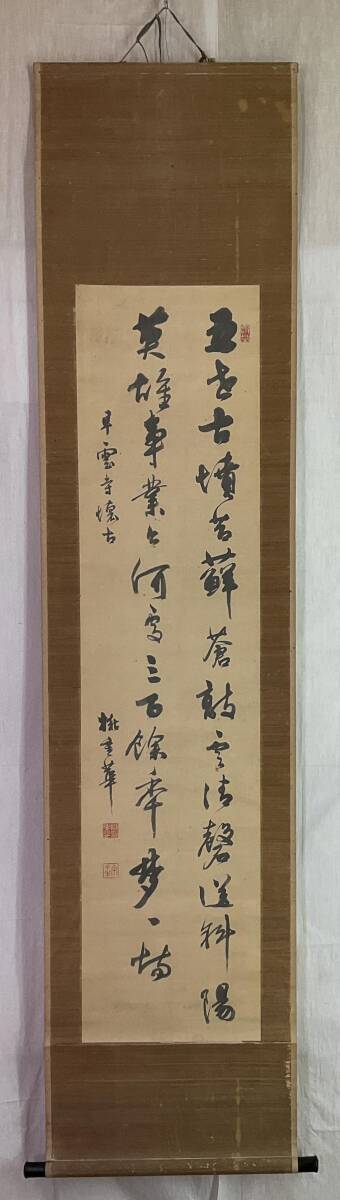 五世古墳苔蘚蒼敲雲清磬送斜陽
英雄事業今何處三百餘年夢一場
早雲寺懐古
華